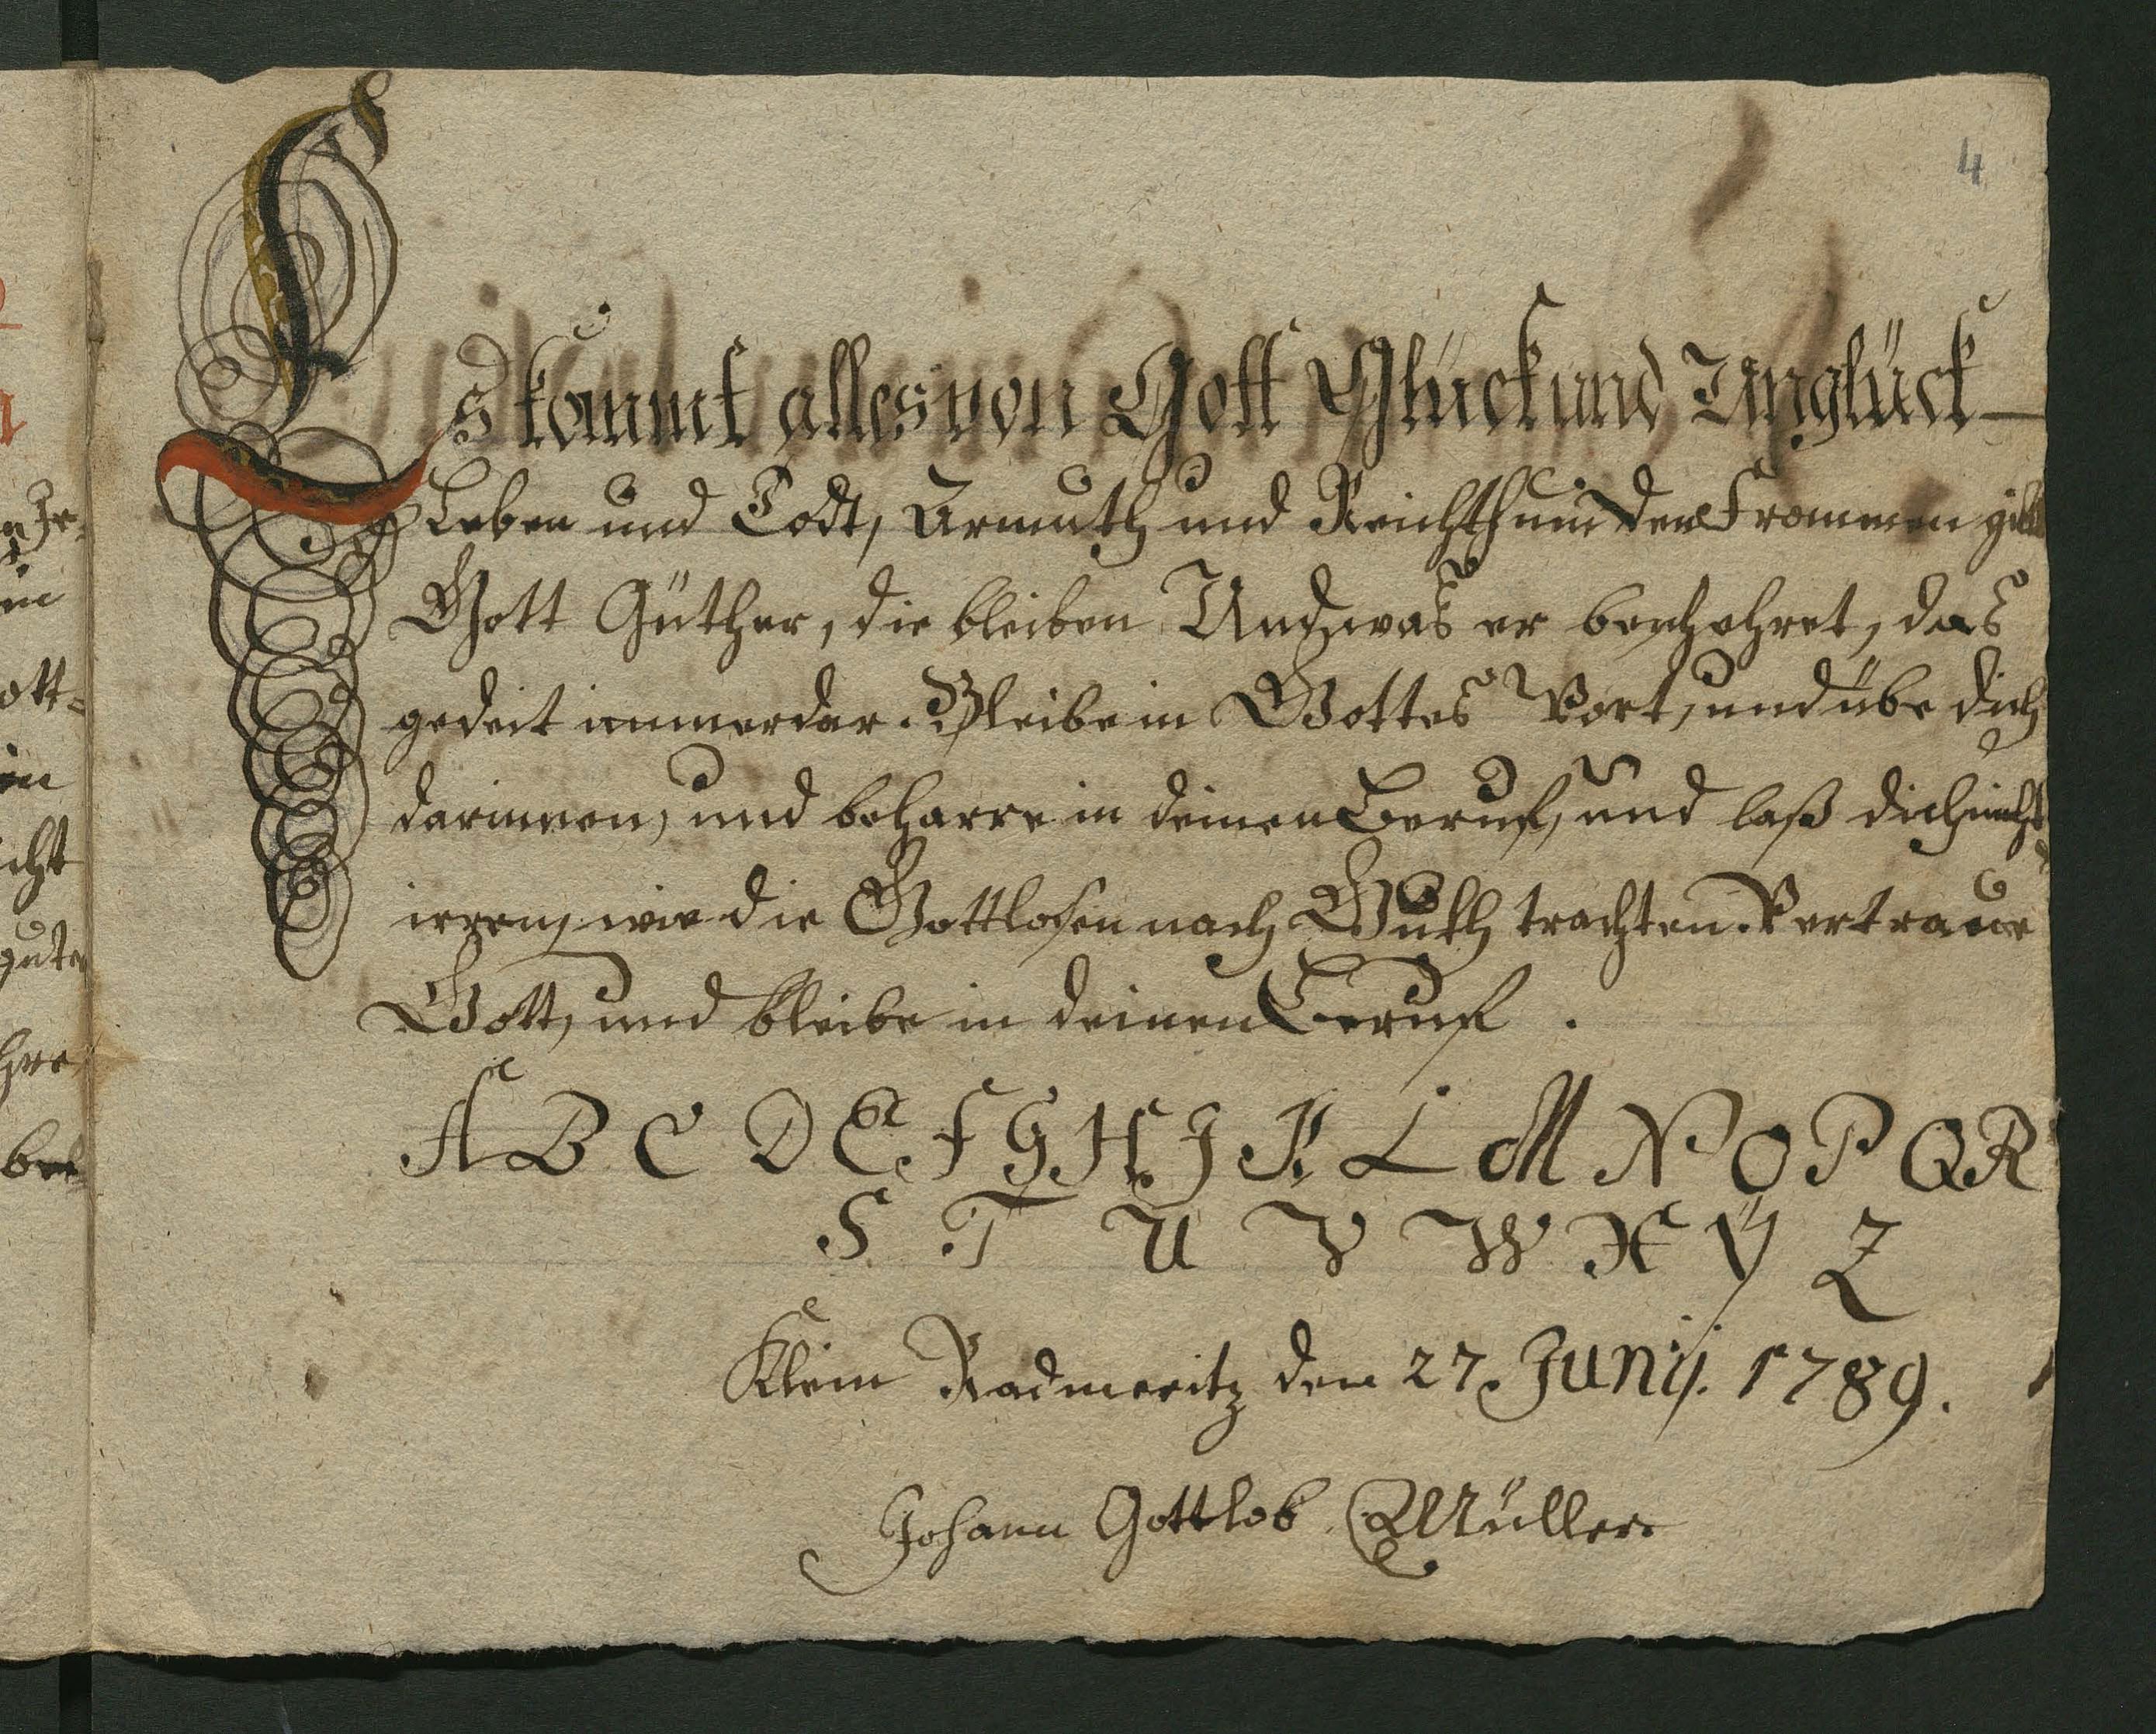 4
Es kommt alles von Gott Glück und Unglück
Leben und Todt, Armuth und Reichthum Den Frommen gibt
Gott Güther, die bleiben Und was er beschehret, das
gedeit immerdar. Bleibe in Gottes Wort, und übe dich
darinnen, und beharre in deinen Beruf, und laß dich nicht
irren, wie die Gottlosen nach Guth trachten. Vertraue
Gott, und bleibe in deinen Beruf.
A B C D E F G H J K L M N O P Q R
S T U V W X Ÿ Z
Klein Radmeritz den 27. Junij. 1789.
Johann Gottlob Müller